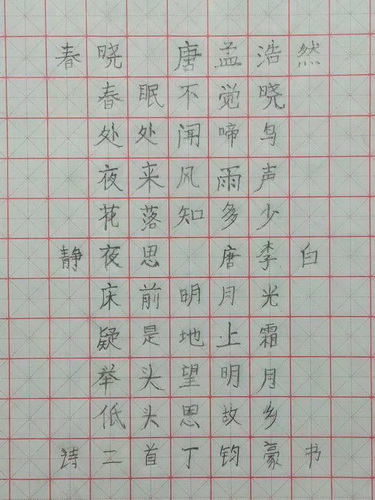 春晓 唐孟浩然
春眠不觉晓
处处闻啼鸟
夜来风雨声
花落知多少
静夜思 唐李白
床前明月光
疑是地上霜
举头望明月
低头思故乡
诗二首丁钧豪书